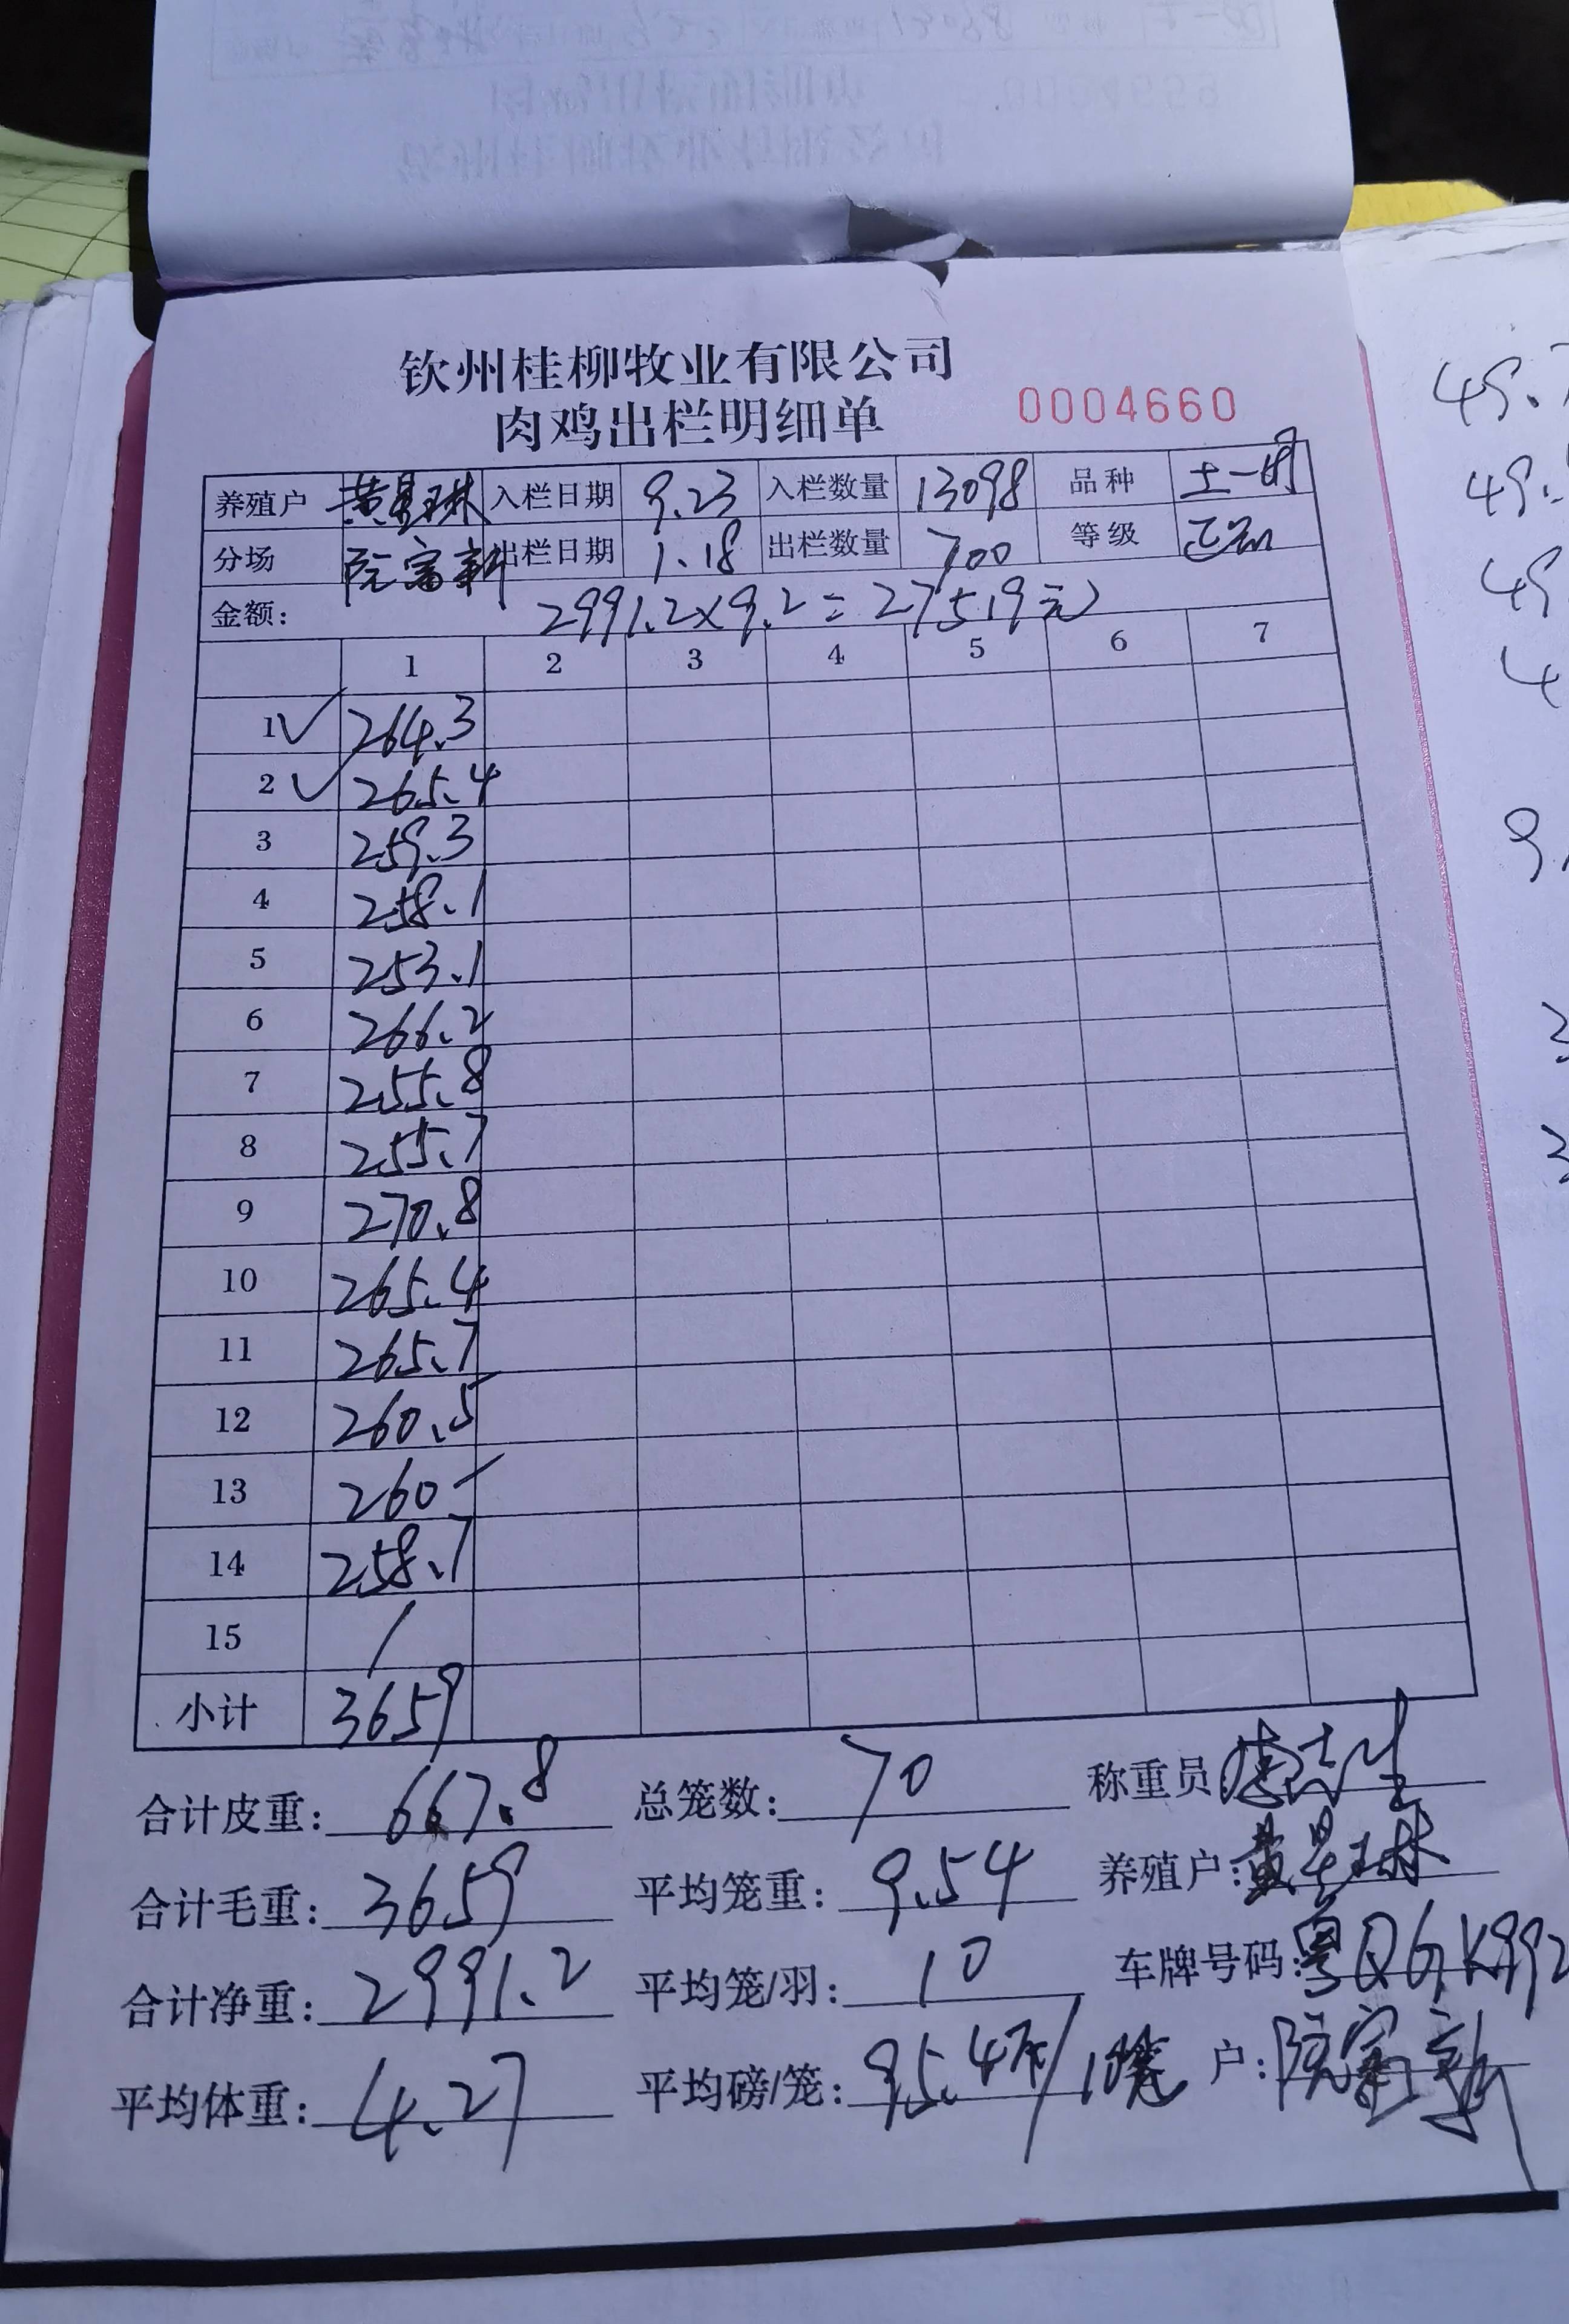 钦州桂柳牧业有限公司
肉鸡出栏明细单 0004660
养殖户 黄星琳 入栏日期 9.23 入栏数量 13098 品种 土一
分场 阮富新 出栏日期 1.18 出栏数量 700 等级 正品
金额: 2991.2×9.2=27519元
1 2 3 4 5 6 7
1 ✓ 264.3
2 ✓ 265.4
3 259.3
4 258.1
5 253.1
6 266.2
7 255.8
8 255.7
9 270.8
10 265.4
11 265.7
12 260.5
13 260 -
14 258.7
15 /
小计 3659
合计皮重: 667.8 总笼数: 70 称重员
合计毛重: 3659 平均笼重: 9.54 养殖户: 黄星琳
合计净重: 2991.2 平均笼/羽: 10 车牌号码: 粤Q6K992
平均体重: 4.27 平均磅/笼: 95.4斤/10笼 户: 阮富新